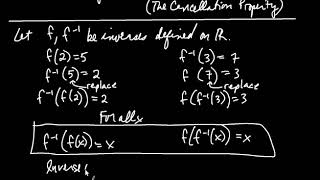 (The Cancellation Property)
Let f, f⁻¹ be inverses defined on ℝ.
f(2)=5 f⁻¹(3) = 7
f⁻¹(5) = 2 f(7) = 3
replace replace
f⁻¹(f(2)) = 2 f(f⁻¹(3)) = 3
For all x
f⁻¹(f(x)) = x f(f⁻¹(x)) = x
Inverse